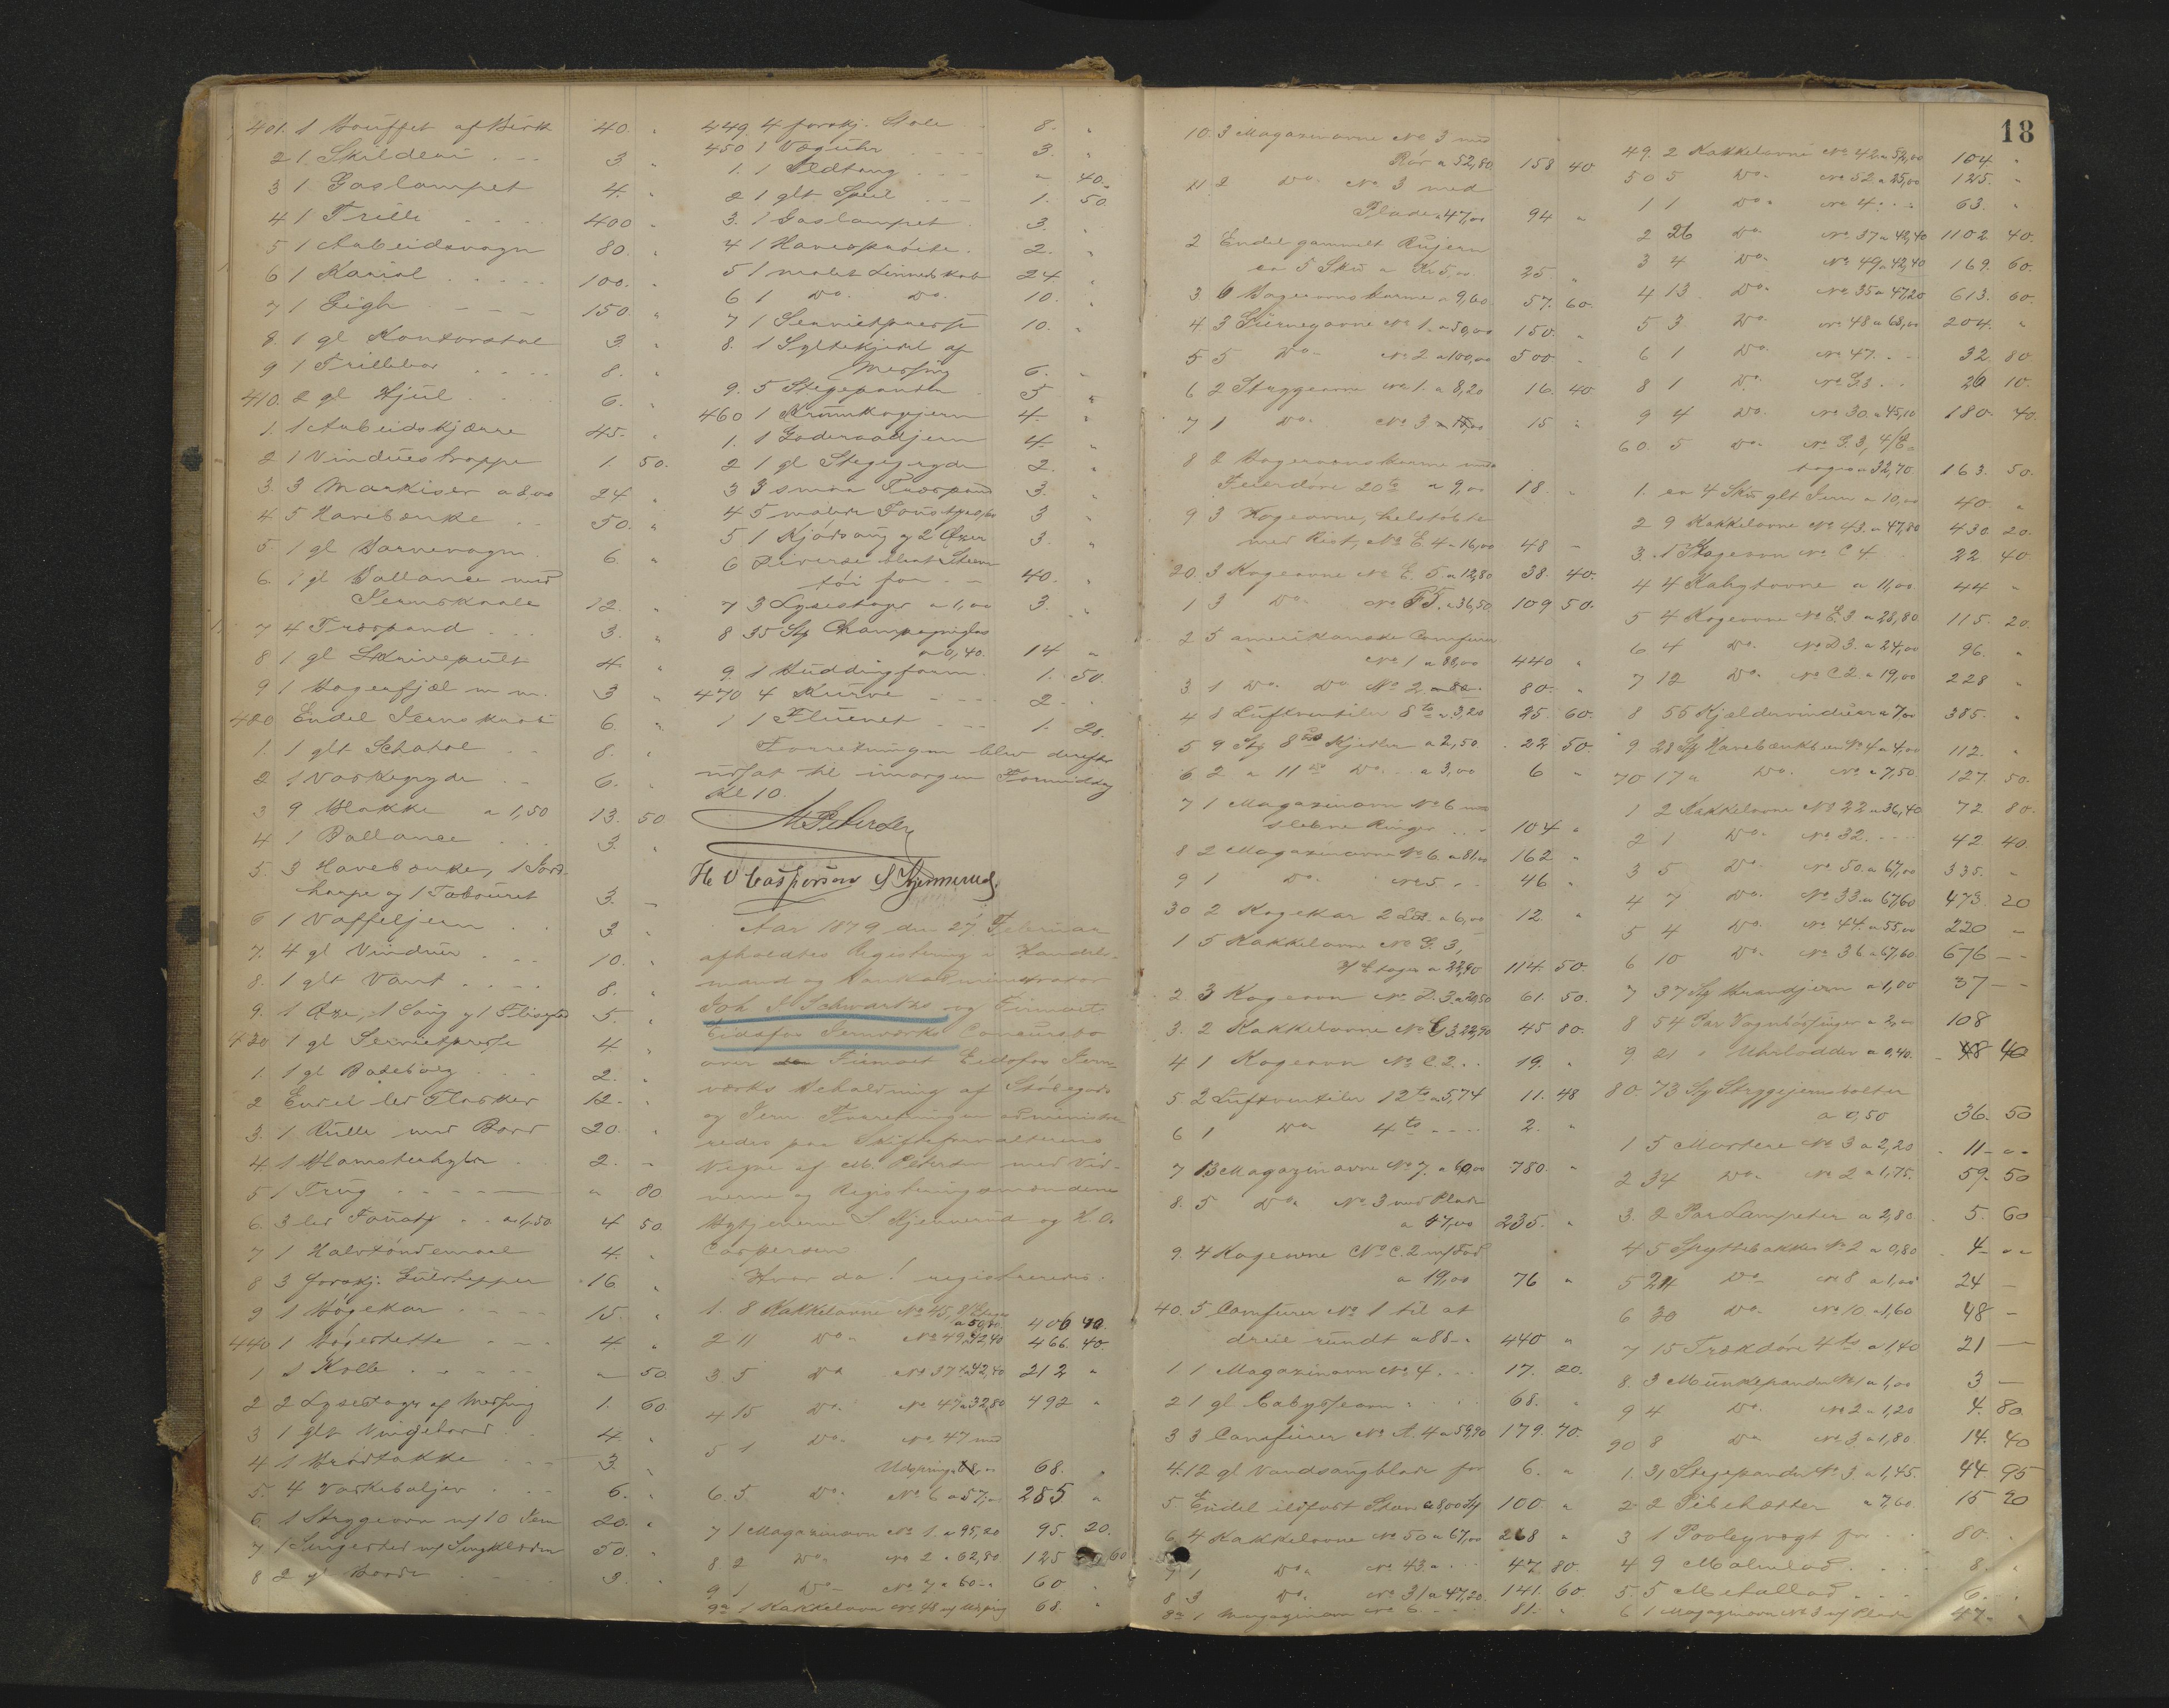 401. 1 Bouffet af Birk 40. "
2 1 Skilderi 3 "
3 1 Gaslampet 4. "
4 1 Trille 400 "
5 1 Arbeidsvogn 80. "
6 1 Kariol 100. "
7 1 Gigh 150 "
8. 1 gl Kontorstol 3. "
9 1 Trillebør 8. "
410. 2 gl Hjul 6. "
1. 1 Arbeidskjærre 45. "
2 1 Vinduestrappe 1. 50.
3. 3 Markiser a 8,00 24 "
4 5 Havebænke 50. "
5. 1 gl Barnevogn. 6. "
6. 1 gl Ballance med
Jernskaale 12. "
7 4 Træspand 3. "
8 1 gl Skrivepult 4. "
9 1 Bagerfjæl m m. 3 "
420 Endel Jernskrab 6 "
1. 1 glt Schatol 8. "
2 1 Vaskegryde 6. "
3 9 Blakke a 1,50 13. 50
4 1 Ballance 3. "
5. 3 Havebænke, 1 Jord-
harpe og 1 Tabouret 3. "
6 1 Vaffeljern 3. "
7. 4 gl Vinduer 10. "
8. 1 glt Vant 8. "
9. 1 Øxe, 1 Saug og 1 5. "
430 1 gl Servietpresse 4. "
1. 1 gl 2. "
2 Endel Flasker 12. "
3. 1 Rulle med Bord 20. "
4. 1 Blomsterhylde 2. "
5 1 Trug " 80.
6. 3 a 1,50 4 50.
7 1 Halvtøndemaal 4. "
8 3 forskj. Gulvtepper 16. "
9 1 Bøgekar 15. "
440 1 Bøgebøtte 4 "
1 1 Kolle " 50
2 2 Lysestager af Messing 1. 60.
3 1 glt Vingebord 4. "
4 1 Brødtakke 3. "
5. 4 Vaskebaljer 6. "
6. 1 Strygeovn m/ 10 Jern 20. "
7 1 Sengested m/ Sengklæder 50. "
8 2 gl Borde 3. "
449. 4 forskj. Stole 8. "
450 1 Væguhr 3. "
1. 1 Ildtang " 40.
2 1 glt Speil 1. 50.
3. 1 Gaslampet 3. "
4 1 Havesprøite. 2. "
5 1 malet Linnedskab 24 "
6 1 Do. Do. 10. "
7 1 Servietpresse 10. "
8. 1 Syltekjedel af
Messing 6. "
9. 5 Stegepander 5 "
460 1 Krumkagejern 4. "
1. 1 Goderaadjern 4 "
2 1 gl Stegegryde 2. "
3 3 smaa Træspand 3. "
4 5 3 "
5 1 Kjødsaug og 2 Øxer 3. "
6 Diverse
for 40. "
7 3 Lysestager a 1,00 3. "
8 35 Stk Champagneglas
a 0,40. 14 "
9. 1 Buddingform 1. 50.
470 4 Kurve 2. "
1 1 1. 20.
Forretningen blev derefter
udsat til imorgen Formiddag
Kl 10.
M Petersen
H. O Caspersen S Kjennerud
Aar 1879 den 27 Februar
afholdtes Registrering i Handels-
mand og Bankadministrator
Joh J Schwartz's og Firmaet
Eidsfos Jernværks Concursbo
over den Firmaet Eidsfos Jern-
værks Beholdning af Støbegods
og Jern Forretningen administre-
redes paa Skifteforvalterens
Vegne af M. Petersen med Vid-
nerne og Registreringsmændene
S Kjennerud og H. O.
Caspersen
Hvor da! registreredes.
1. 8 Kakkelovne No 45, 2/Etager
a 50,80. 406 40.
2 11 Do. No 49 a 42,40 466. 40
3. 5 Do No 37 a 42,40 212 "
4 15 Do. No 47 a 32,80 492 "
5 1 Do. No. 47 med
Udspring 68,00 68. "
6. 5 Do. No. 6 a 57,00 285 "
7 1 Magazinovn No 1. a 95,20 95. 20.
8. 2 Do. No 2 a 62,80. 125 60
9 1 Do. No 7 a 60,00 60 "
9a 1 Kakkelovn No 48 m/ Udspring 68. "
18
10. 3 Magazinovne No 3 med
Rør a 52,80 158 40
11 2 Do. No. 3 med
Plade a 47,00 94 "
2 Endel gammelt Rujern
ca 5 Skd a Kr 5,00 25. "
3 6 Bagerovnskarme a 9,60 57. 60.
4. 3 No 1. a 50,00 150. "
5 5 Do. No. 2 a 100,00 500 "
6 2 Strygeovne No 1. a 8,20 16. 40
7 1 Do. No 3 a 15,00 15 "
8 2 Bagerovnskarme med
Feierdøre 20te a 9,00 18. "
9 3 Kogeovne, helstøbte
med Rist, No E. 4 a 16,00 48 "
20. 3 Kogeovne No E. 5. a 12,80 38. 40.
1 3 Do. No F5. a 36,50 109 50.
2 5 amerikanske Comfurer
No 1 a 88,00 440 "
3 1 Do. Do No 2 a 80. 80. "
4 8 Luftventiler 8te a 3,20 25. 60.
5 9 Stk 8te Kjedler a 2,50. 22 50.
6 2 " 11te Do. a 3,00 6 "
7 1 Magazinovn No 6 med
slebne Ringer 104 "
8 2 Magazinovne No 6. a 81,00 162 "
9 1 Do. No 5. 46 "
30 2 Kogekar 2 a 6,00 12. "
1 5 Kakkelovne No G. 3,
2/Etager a 22,90 114. 50.
2. 3 Kogeovn No. D. 3. a 20,50 61. 50.
3. 2 Kakkelovne No G 3. 22,90 45 80.
4 1 Kogeovn No C. 2. 19. "
5 2 Luftventiler 12te a 5,74 11. 48
6 1 Do 4te 2. "
7 13 Magazinovne No 7. a 60,00 780. "
8. 5 Do. No 3 med Plade
a 47,00 235. "
9. 4 Kogeovne No C. 2 m/Fod
a 19,00 76 "
40. 5 Comfurer No 1 til at
dreie rundt a 88,00 440 "
1. 1 Magazinovn No. 4 17. 20.
2 1 gl Cabysseovn 68. "
3 3 Comfurer No A. 4 a 59,90 179. 70.
4. 12 gl Vandsaugblade for 6. "
5 Endel ildfast Steen a 8,00 100. "
6. 4 Kakkelovne No 50 a 67,00 268 "
7 1 Do. No 43. a 47. 80.
8 3 Do. No 31 a 47,20. 141. 60.
8a 1 Magazinovn No 6. 81. "
49. 2 Kakkelovne No 42 a 52,00 104 "
50 5 Do. No 52 a 25,00 125. "
1 1 Do. No 4. 63. "
2 26 Do. No. 37 a 42,40 1102 40.
3 4 Do. No 49 a 42,40 169. 60.
4 13 Do. No. 35 a 47,20 613. 60.
5 3. Do. No 48 a 68,00 204. "
6 1 Do. No 47. 32. 80
8 1 Do. No G3 26 10.
9 4 Do. No 30. a 45,10 180. 40.
60. 5 Do. No G. 3, 4/E-
tager a 32,70. 163. 50.
1. ca 4 Skd glt Jern a 10,00 40. "
2 9 Kakkelovne No 43. a 47,80 430. 20.
3. 1 Kogeovn No C 4 22 40.
4 4 Kahytovne a 11,00 44 "
5 4 Kogeovne No E. 3 a 28,80 115. 20.
6 4 Do. No D 3. a 24,00 96. "
7 12 Do. No C 2. a 19,00 228 "
8 55 Kjældervinduer a 7,00 385. "
9 28 Stk Havebænkben No 4 a 4,00 112. "
70 17 " Do. No. a 7,50. 127. 50.
1 2 Kakkelovne No 22 a 36,40 72. 80.
2 1 Do. No 32. 42. 40.
3 5 Do. No 50. a 67,00 335. "
4 7 Do. No 33. a 67,60 473. 20
5 4 Do. No 44. a 55,00 220 "
6 10 Do. No 36 a 67,60. 676 "
7 37 Stk Brandjern a 1,00 37 "
8 54 Par Vognbøssinger a 2,00 108
9. 21 " Uhrlodder a 0,40. 8 40
80. 73 Stk Strygejernsbolter
a 0,50 36. 50
1 5 Mortere No 3 a 2,20 11 "
2 34 Do. No 2 a 1,75. 59. 50
3. 2 Par Lampeter a 2,80. 5. 60
4 5 Spyttebakker No 2 a 0,80 4 "
5 24 Do No 8 a 1,00 24 —
6 30 Do. No 10. a 1,60 48 —
7 15 Trækdøre 4te a 1,40 21 —
8. 3 Munkepander No 1 a 1,00 3 —
9 4 Do. No 2 a 1,20 4. 80.
90 8 Do No 3 a 1,80. 14. 40
1. 31 Stegepander No 3 a 1,45. 44. 95
2 2 Pibehatter a 7,60. 15 20
3 1 for 80. "
4 9 8. "
5. 5 6. "
6 1 Magazinovn No 3 m/ Plade 47. "